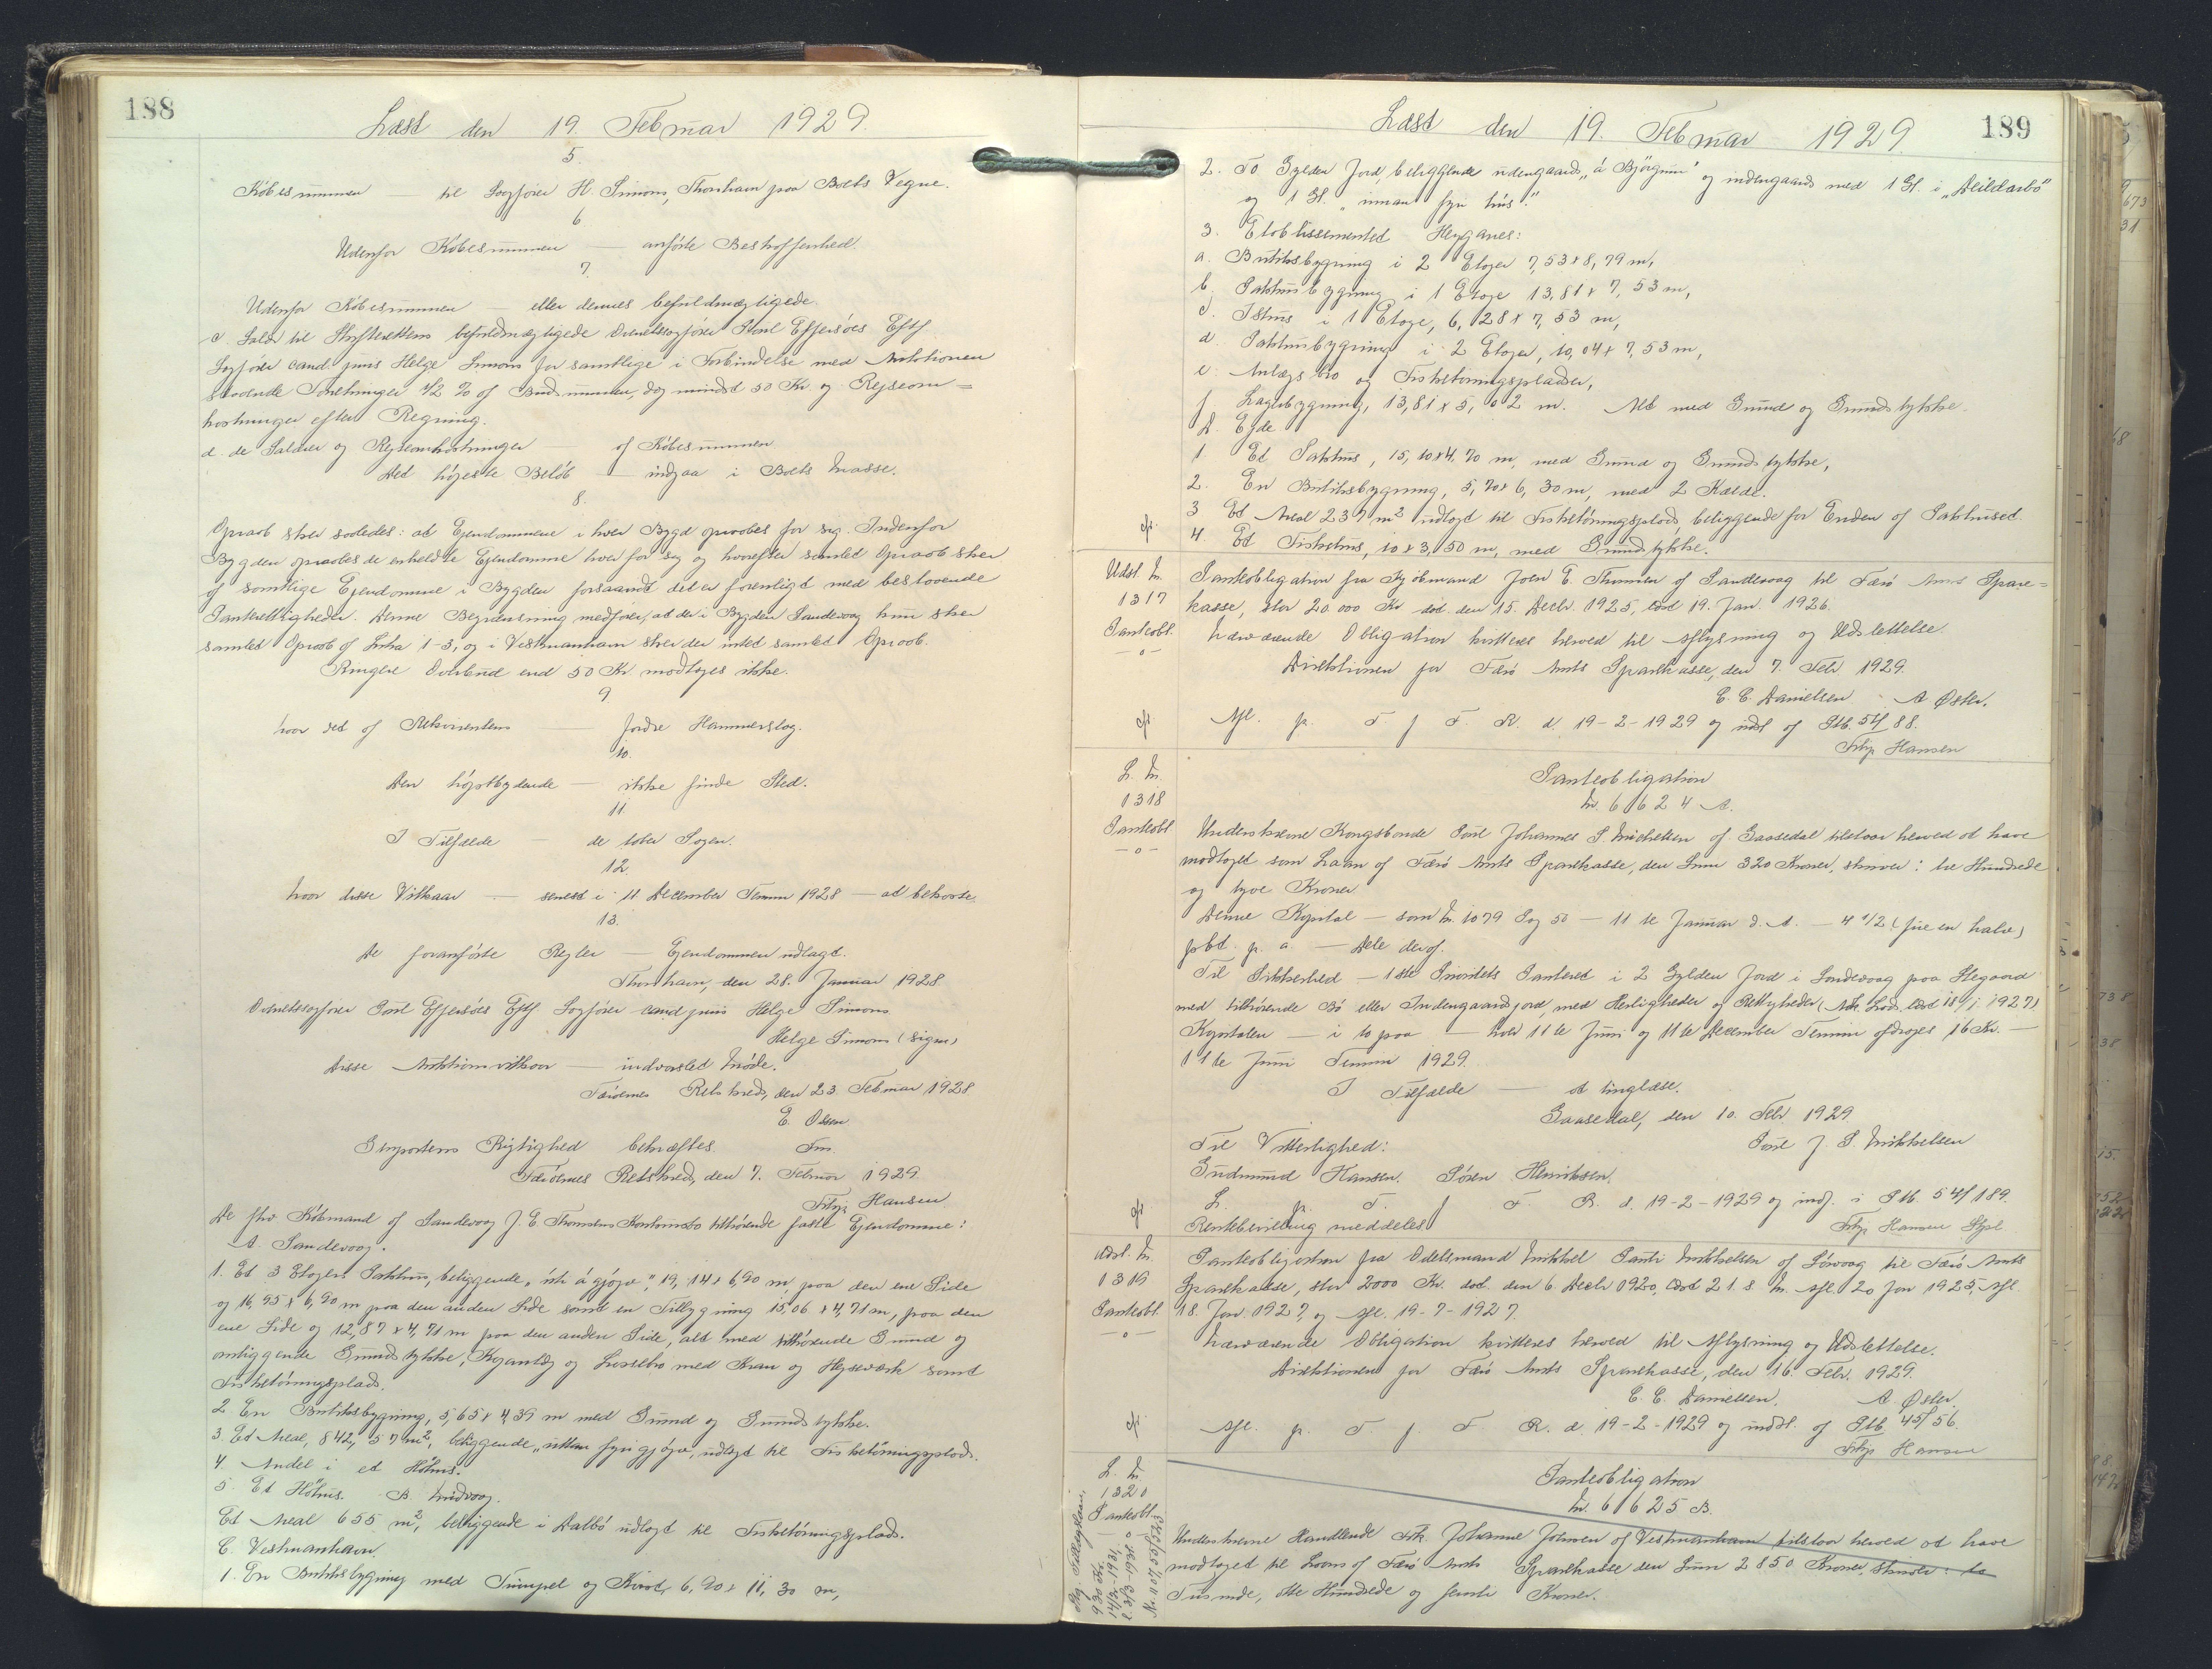 188
Læst den 19. Februar 1929.
5.
Købesummen — til Sagfører H. Simons, Thorshavn paa Boets Vegne.
6
Udenfor Købesummen — anførte Beskaffenhed.
7.
Udenfor Købesummen — eller dennes befuldmægtigede.
c. Salær til Skifterettens befuldmægtigede Overretssagfører Poul Effersøes Eftf.
Sagfører cand. juris Helge Simons for samtlige i Forbindelse med Auktionen
staaende Forretninger 1/2 % af Budsummen, dog mindst 50 Kr og Rejseom=
kostninger efter Regning.
d. de Salærer og Rejseomkostninger af Købesummen
Det højeste Beløb — indgaa i Boets Masse.
8.
Opraab sker saaledes: at Ejendommene i hver Bygd opraabes for sig. Indenfor
Bygden opraabes de enkelte Ejendomme hver for sig og hvorefter samlet Opraab sker
af samtlige Ejendomme i Bygden forsaavidt det er foreneligt med bestaaende
Panterettigheder. Denne Begrænsning medfører, at der i Bygden Sandevaag kun sker
samlet Opraab af Litra 1-3, og i Vestmanhavn sker der intet samlet Opraab.
Ringere Overbud end 50 Kr modtages ikke.
9.
hvor det af Rekvirenten — fordre Hammerslag.
10.
Den højstbydende — ikke finde Sted.
11.
I Tilfælde — de taber Sagen.
12.
hvor disse Vilkaar — senest i 11 December Termin 1928 — at bekoste.
13.
De foranførte Regler — Ejendommen udlagt.
Thorshavn, den 28. Januar 1928
Overretssagfører Poul Effersøes Eftf. Sagfører cand juris Helge Simons
Helge Simons (sign)
Disse Auktionsvilkaar — indvarslet Møde.
Færøernes Retskreds, den 23 Februar 1928
E. Olsen
Fm.
Genpartens Rigtighed bekræftes.
Færøernes Retskreds, den 7. Februar 1929.
Filip Hansen
De fhv Købmand af Sandevaag J. E. Thomsens Konkursbo tilhørende faste Ejendomme:
A. Sandevaag.
1. Et 3 Etagers Pakhus, beliggende „úti á gjógv", 19,14 x 6,90 m, paa den ene Side
og 16,95 x 6,90 m paa den anden Side samt en Tilbygning 15,06 x 4,71 m, paa den
ene Side og 12,87 x 4,71 m paa den anden Side, alt med tilhørende Grund og
omliggende Grundstykke, Kajanlæg og Lossebro med Kran og Hejseværk samt
Fisketørringsplads.
2. En Butiksbygning, 5,65 x 4,39 m med Grund og Grundstykke.
3. Et Areal, 842,57 m², beliggende „uttan fyri gjógv", udlagt til Fisketørringsplads.
4. Andel i et Høhus.
5. Et Høhus. B. Midvaag.
Et Areal 655 m², beliggende i Dalbø udlagt til Fisketørringsplads.
C. Vestmanhavn.
1. En Butiksbygning med Tumpel og Kvist, 6,90 x 11,30 m,
189
Læst den 19. Februar 1929
2. To Gylden Jord, beliggende udengaards „á Bjørgum" og indengaards med 1 Gl. i „Deildarbø"
og 1 Gl. „innan fyri hús".
3. Etablissementet Heyganes:
a. Butiksbygning i 2 Etager 7,53 x 8,79 m,
b. Pakhusbygning i 1 Etage 13,81 x 7,53 m,
c. Ishus i 1 Etage, 6,28 x 7,53 m,
d. Pakhusbygning i 2 Etager, 10,04 x 7,53 m,
e. Anlægsbro og Fisketørringspladser,
f. Lagerbygning, 13,81 x 5,02 m. Alt med Grund og Grundstykke.
D. Ejde
1. Et Pakhus, 15,10 x 4,70 m, med Grund og Grundstykke,
2. En Butiksbygning, 5,70 x 6,30 m, med 2 Kælde.
3 Et Areal 237 m² udlagt til Fisketørringsplads beliggende for Enden af Pakhuset.
cfr. 4. Et Fiskehus, 10 x 3,50 m, med Grundstykke.
Udsl. Nr. 1317 Panteobl. —o—
Panteobligation fra Kjøbmand Joen E. Thomsen af Sandevaag til Færø Amts Spare=
kasse, stor 20.000 Kr dat. den 15. Decbr. 1925, læst 19. Jan. 1926.
Nærværende Obligation kvitteres herved til Aflysning og Udslettelse.
Direktionen for Færø Amts Sparekasse, den 7. Febr 1929.
C. C. Danielsen A Øster.
cfr. Afl. p. T. f. F. R. d. 19-2-1929 og udsl af Ptb. 54/88.
Filip Hansen
L. Nr. 1318 Panteobl —o—
Panteobligation
Nr. 61624 A.
Underskrevne Kongsbonde Poul Johannes P. Mikkelsen af Gaasedal tilstaar herved at have
modtaget som Laan af Færø Amts Sparekasse, den Sum 320 Kroner, skriver: tre Hundrede
og tyve Kroner
Denne Kapital — som Nr. 1079 Pag 50 — 11 te Januar d. A. — 4 1/2 (fire en halv)
pCt. p. a. — Dele deraf.
Til Sikkerhed — 1ste Prioritets Panteret i 2 Gylden Jord i Sandevaag paa Stegaard
med tilhørende Bø eller Indengaardsjord, med Herligheder og Rettigheder (Adk. Læst 18/1 1927)
Kapitalen — i to paa — hver 11 te Juni og 11 te December Termin afdrages 16 Kr. —
11te Juni Termin 1929.
I Tilfælde — at tinglæse.
Gaasedal, den 10. Febr 1929.
Til Vitterlighed: Poul J. P. Mikkelsen
Gudmund Hansen. Søren Henriksen.
cfr. L. p. T. f F. R. d. 19-2-1929 og indf. i Ptb 54/189.
Rentebevilling meddeles Filip Hansen
Udsl. Nr. 1319 Panteobl. —o—
Panteobligation fra Odelsmand Mikkel Pauli Mikkelsen af Sørvaag til Færø Amts
Sparekasse, stor 2000 Kr. dat. den 6 Decbr 1920, læst 21. s. M. afl. 20 Jan 1925, afl.
18. Jan 1927, og afl. 19-7-1927.
Nærværende Obligation kvitteres herved til Aflysning og Udslettelse.
Direktionen for Færø Amts Sparekasse, den 16. Febr. 1929.
C. C. Danielsen. A. Øster.
cfr. Afl. p. T f. F R. d. 19-2-1929 og udsl. af Ptb 45/56.
Filip Hansen
L. Nr. 1320 Panteobl. —o—
Panteobligation
Nr. 61625 B.
Underskrevne Handlende Frk. Johanne Joensen af Vestmanhavn tilstaar herved at have
modtaget til Laans af Færø Amts Sparekasse den Sum 2850 Kroner, skriver: to
Tusinde, otte Hundrede og femti Kroner.